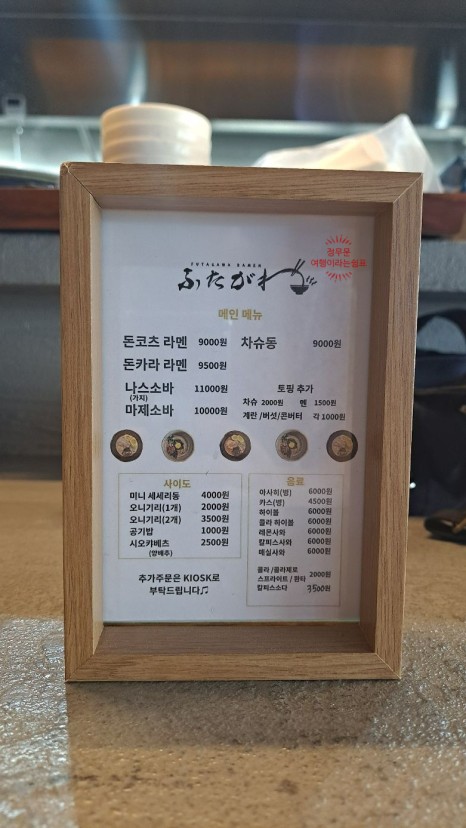 FUTAGAWA RAMEN
ふたがわ
정우문
여행이라는필로
메인 메뉴
돈코츠 라멘 9000원 차슈동 9000원
돈카라 라멘 9500원
나스소바 11000원
(가지)
마제소바 10000원
토핑 추가
차슈 2000원 멘 1500원
계란 /버섯/콘버터 각 1000원
사이드
미니 세세리동 4000원
오니기리(1개) 2000원
오니기리(2개) 3500원
공기밥 1000원
시오캬베츠 2500원
(양배추)
추가주문은 KIOSK로
부탁드립니다♫
음료
아사히(병) 6000원
카스(병) 4500원
하이볼 6000원
콜라 하이볼 6000원
레몬사와 6000원
칼피스사와 6000원
매실사와 6000원
콜라 /콜라제로
스프라이트 / 환타 2000원
칼피스소다 3500원